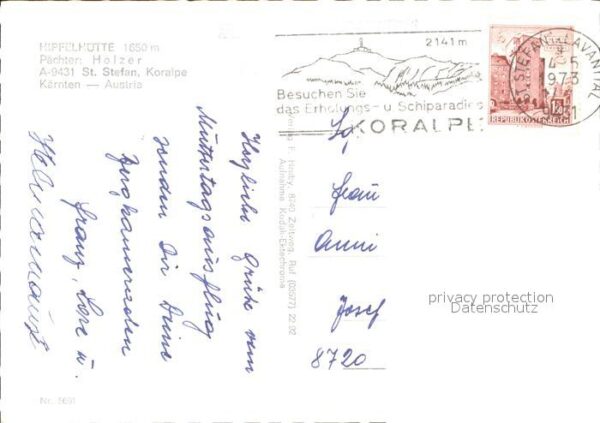 HIPFELHÜTTE 1650 m
Pächter: Holzer
A-9431 St. Stefan, Koralpe
Kärnten — Austria
2141 m
Besuchen Sie
das Erholungs- u Schiparadies
KORALPE
ST. STEFAN LAVANTTAL
1973
9431
REPUBLIK ÖSTERREICH
Herzliche Grüße vom
Muttertagsausflug
senden Dir Deine
Bergkameraden
Franz, Lore u.
F. Hruby, 8740 Zeltweg, Ruf (03577) 22 92
Aufnahme Kodak-Ektachrome
Frau
Anni
Josef
8720
privacy protection
Datenschutz